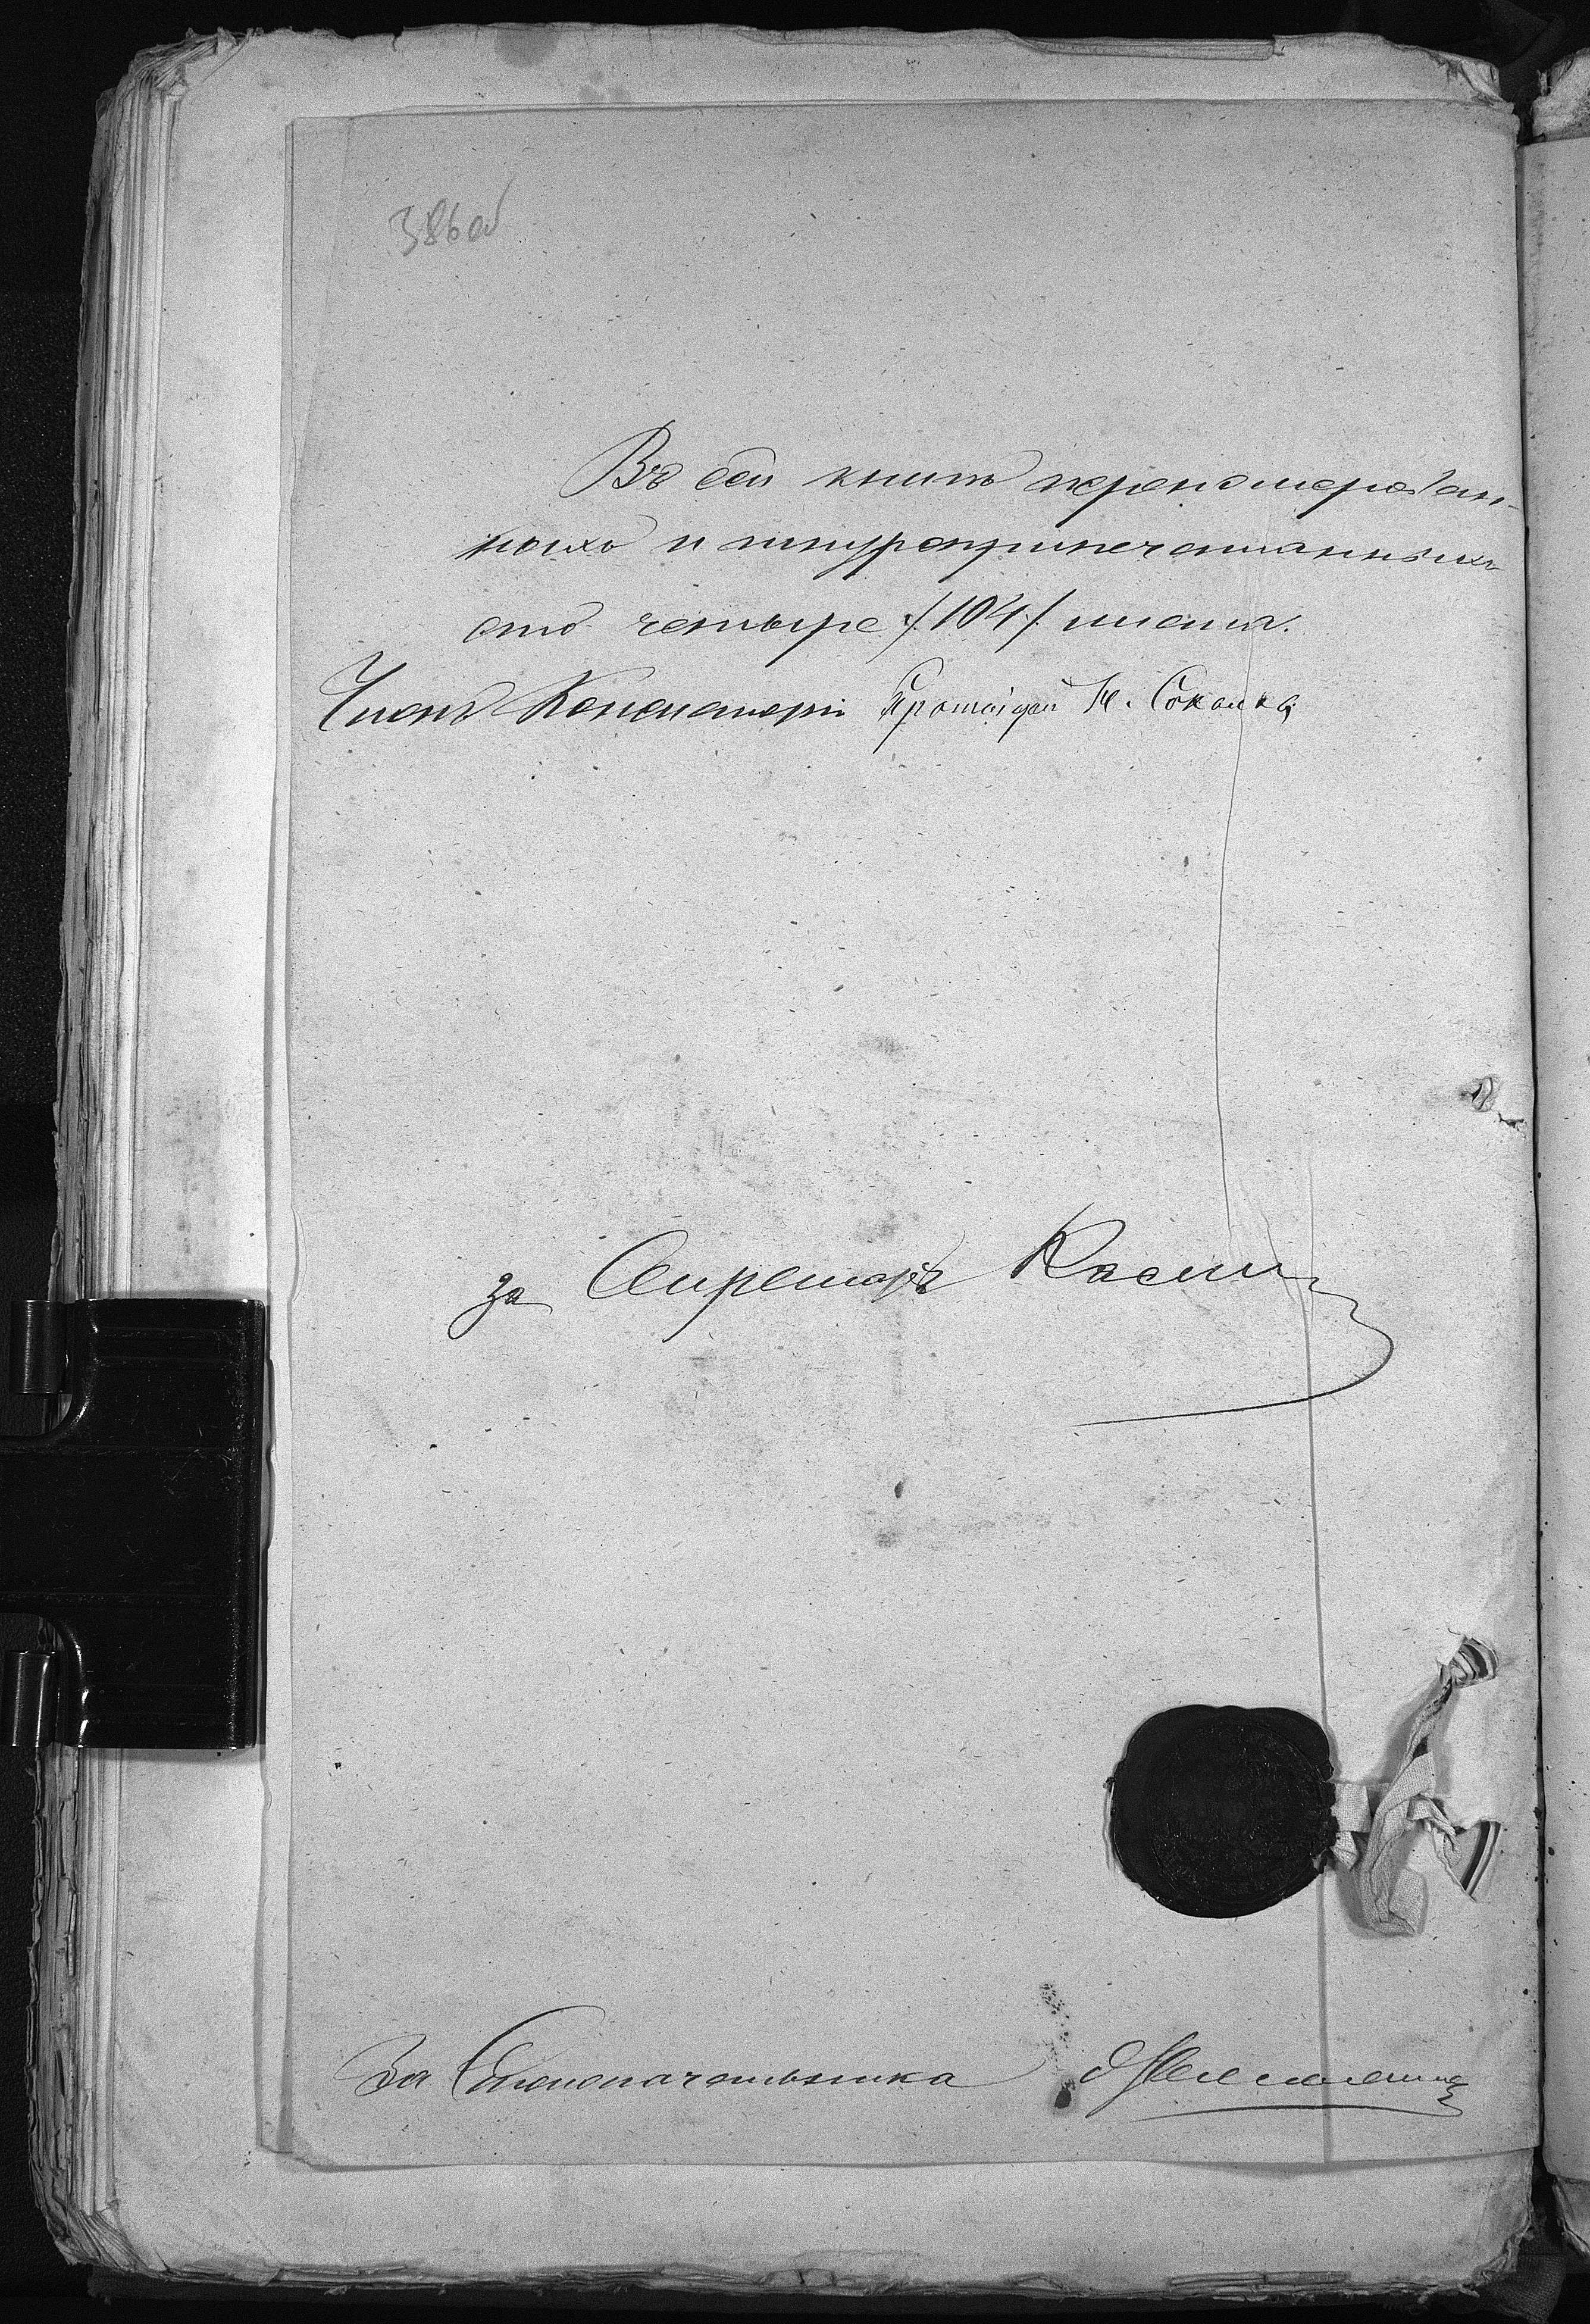 386 об
Въ сей книгѣ перенумерован-
ныхъ и шнуроприпечатанныхъ
сто четыре /104/ листа.
Членъ Консисторіи Протоіерей Н. Соколовъ
за Секретаря
За Столоначальника